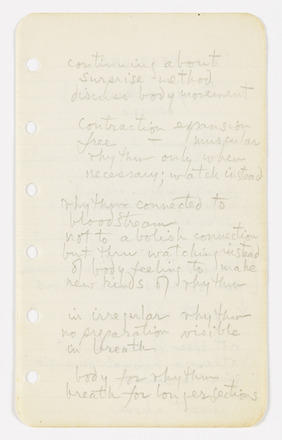 continuing about
surprise method
discuss body movement
contraction expansion
free — / muscular
rhythm only when
necessary; watch instead
rhythm connected to
bloodstream
not to abolish connection
but thru watching instead
of body feeling to make
new kinds of rhythm
in irregular rhythm
no preparation visible
in breath
body for rhythm
breath for longer sections